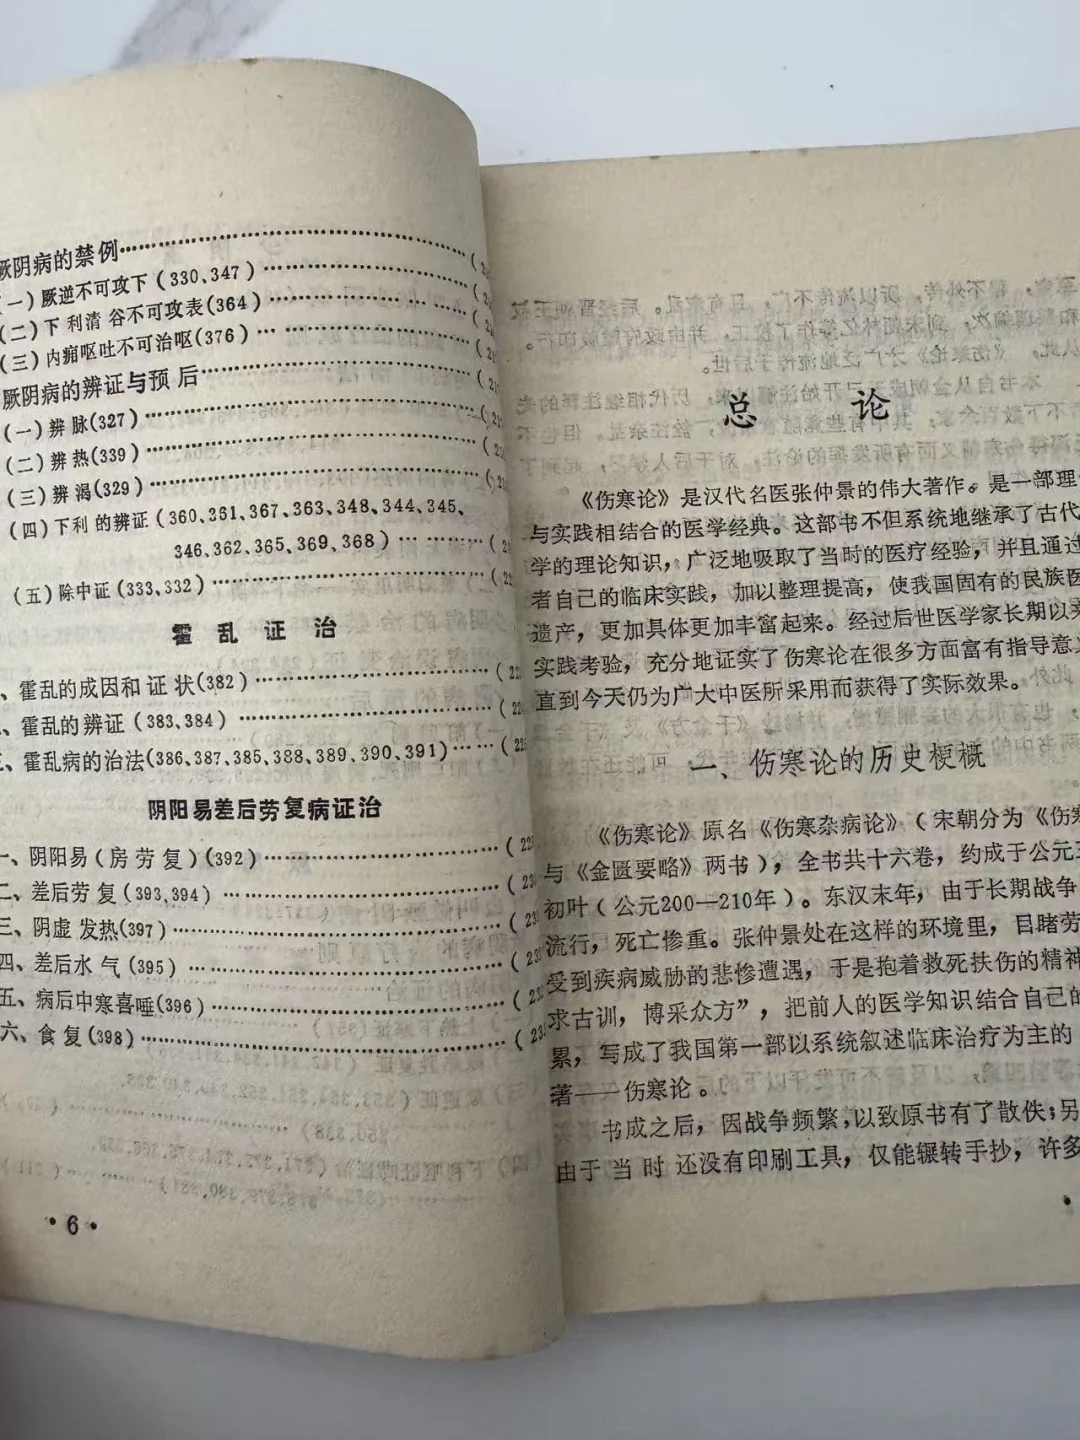 厥阴病的禁例……………………………(2
(一)厥逆不可攻下(330、347)………………(2
(二)下利清谷不可攻表(364)………………(2
(三)内痈呕吐不可治呕(376)………………(21
厥阴病的辨证与预后……………………(21
(一)辨脉(327)……………………………(21
(二)辨热(339)……………………………(21
(三)辨渴(329)……………………………(21
(四)下利的辨证(360、361、367、363、348、344、345、
346、362、365、369、368)………………(2
(五)除中证(333、332)……………………(22
霍乱证治
、霍乱的成因和证状(382)………………(22
、霍乱的辨证(383、384)…………………(22
、霍乱病的治法(386、387、385、388、389、390、391)……(22
阴阳易差后劳复病证治
一、阴阳易(房劳复)(392)………………(22
二、差后劳复(393、394)…………………(23
三、阴虚发热(397)………………………(23
四、差后水气(395)………………………(23
五、病后中寒喜唾(396)…………………(23
六、食复(398)……………………………(23
·6·
总论
《伤寒论》是汉代名医张仲景的伟大著作。是一部理
与实践相结合的医学经典。这部书不但系统地继承了古代
学的理论知识，广泛地吸取了当时的医疗经验，并且通过
者自己的临床实践，加以整理提高，使我国固有的民族医
遗产，更加具体更加丰富起来。经过后世医学家长期以来
实践考验，充分地证实了伤寒论在很多方面富有指导意
直到今天仍为广大中医所采用而获得了实际效果。
一、伤寒论的历史梗概
《伤寒论》原名《伤寒杂病论》(宋朝分为《伤
与《金匮要略》两书)，全书共十六卷，约成于公元三
初叶(公元200—210年)。东汉末年，由于长期战争
流行，死亡惨重。张仲景处在这样的环境里，目睹劳
受到疾病威胁的悲惨遭遇，于是抱着救死扶伤的精神
求古训，博采众方”，把前人的医学知识结合自己的
累，写成了我国第一部以系统叙述临床治疗为主的
著——伤寒论。
书成之后，因战争频繁，以致原书有了散佚；另
由于当时还没有印刷工具，仅能辗转手抄，许多